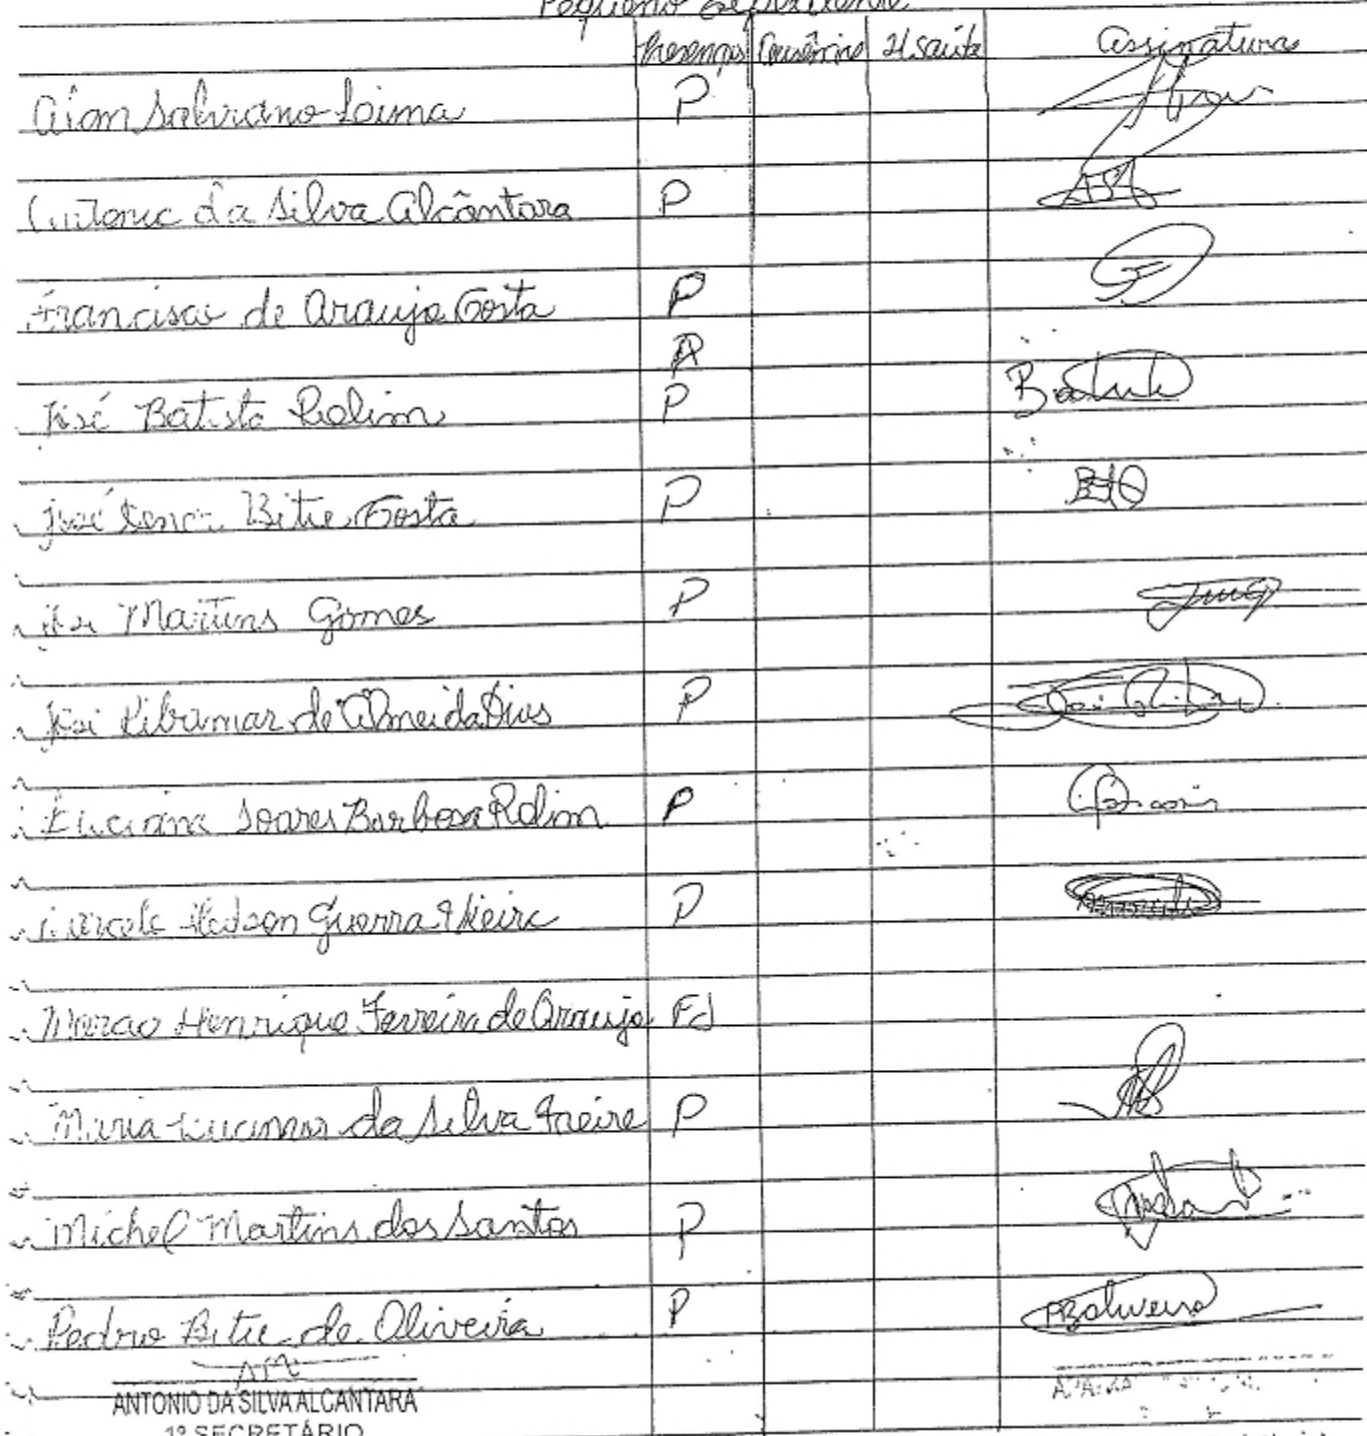 Pequeno Expediente
Presença Ausência L/Saúde Assinatura
Cian Salviano Loima P
Antonio da Silva Alcântara P
Francisco de Araujo Costa P
José Batista Rolim P Batista
José Bitu Costa P
José Martins Gomes P
José Ribamar de Almeida Dias P
Luciana Soares Barbosa Rolim P
Guerra Vieira P
Marcao Henrique Ferreira de Araujo FJ
Maria Lucimar da Silva Freire P
Michel Martins dos Santos P
Pedro Bitu de Oliveira P PBoliveira
ANTONIO DA SILVA ALCANTARA
1º SECRETÁRIO